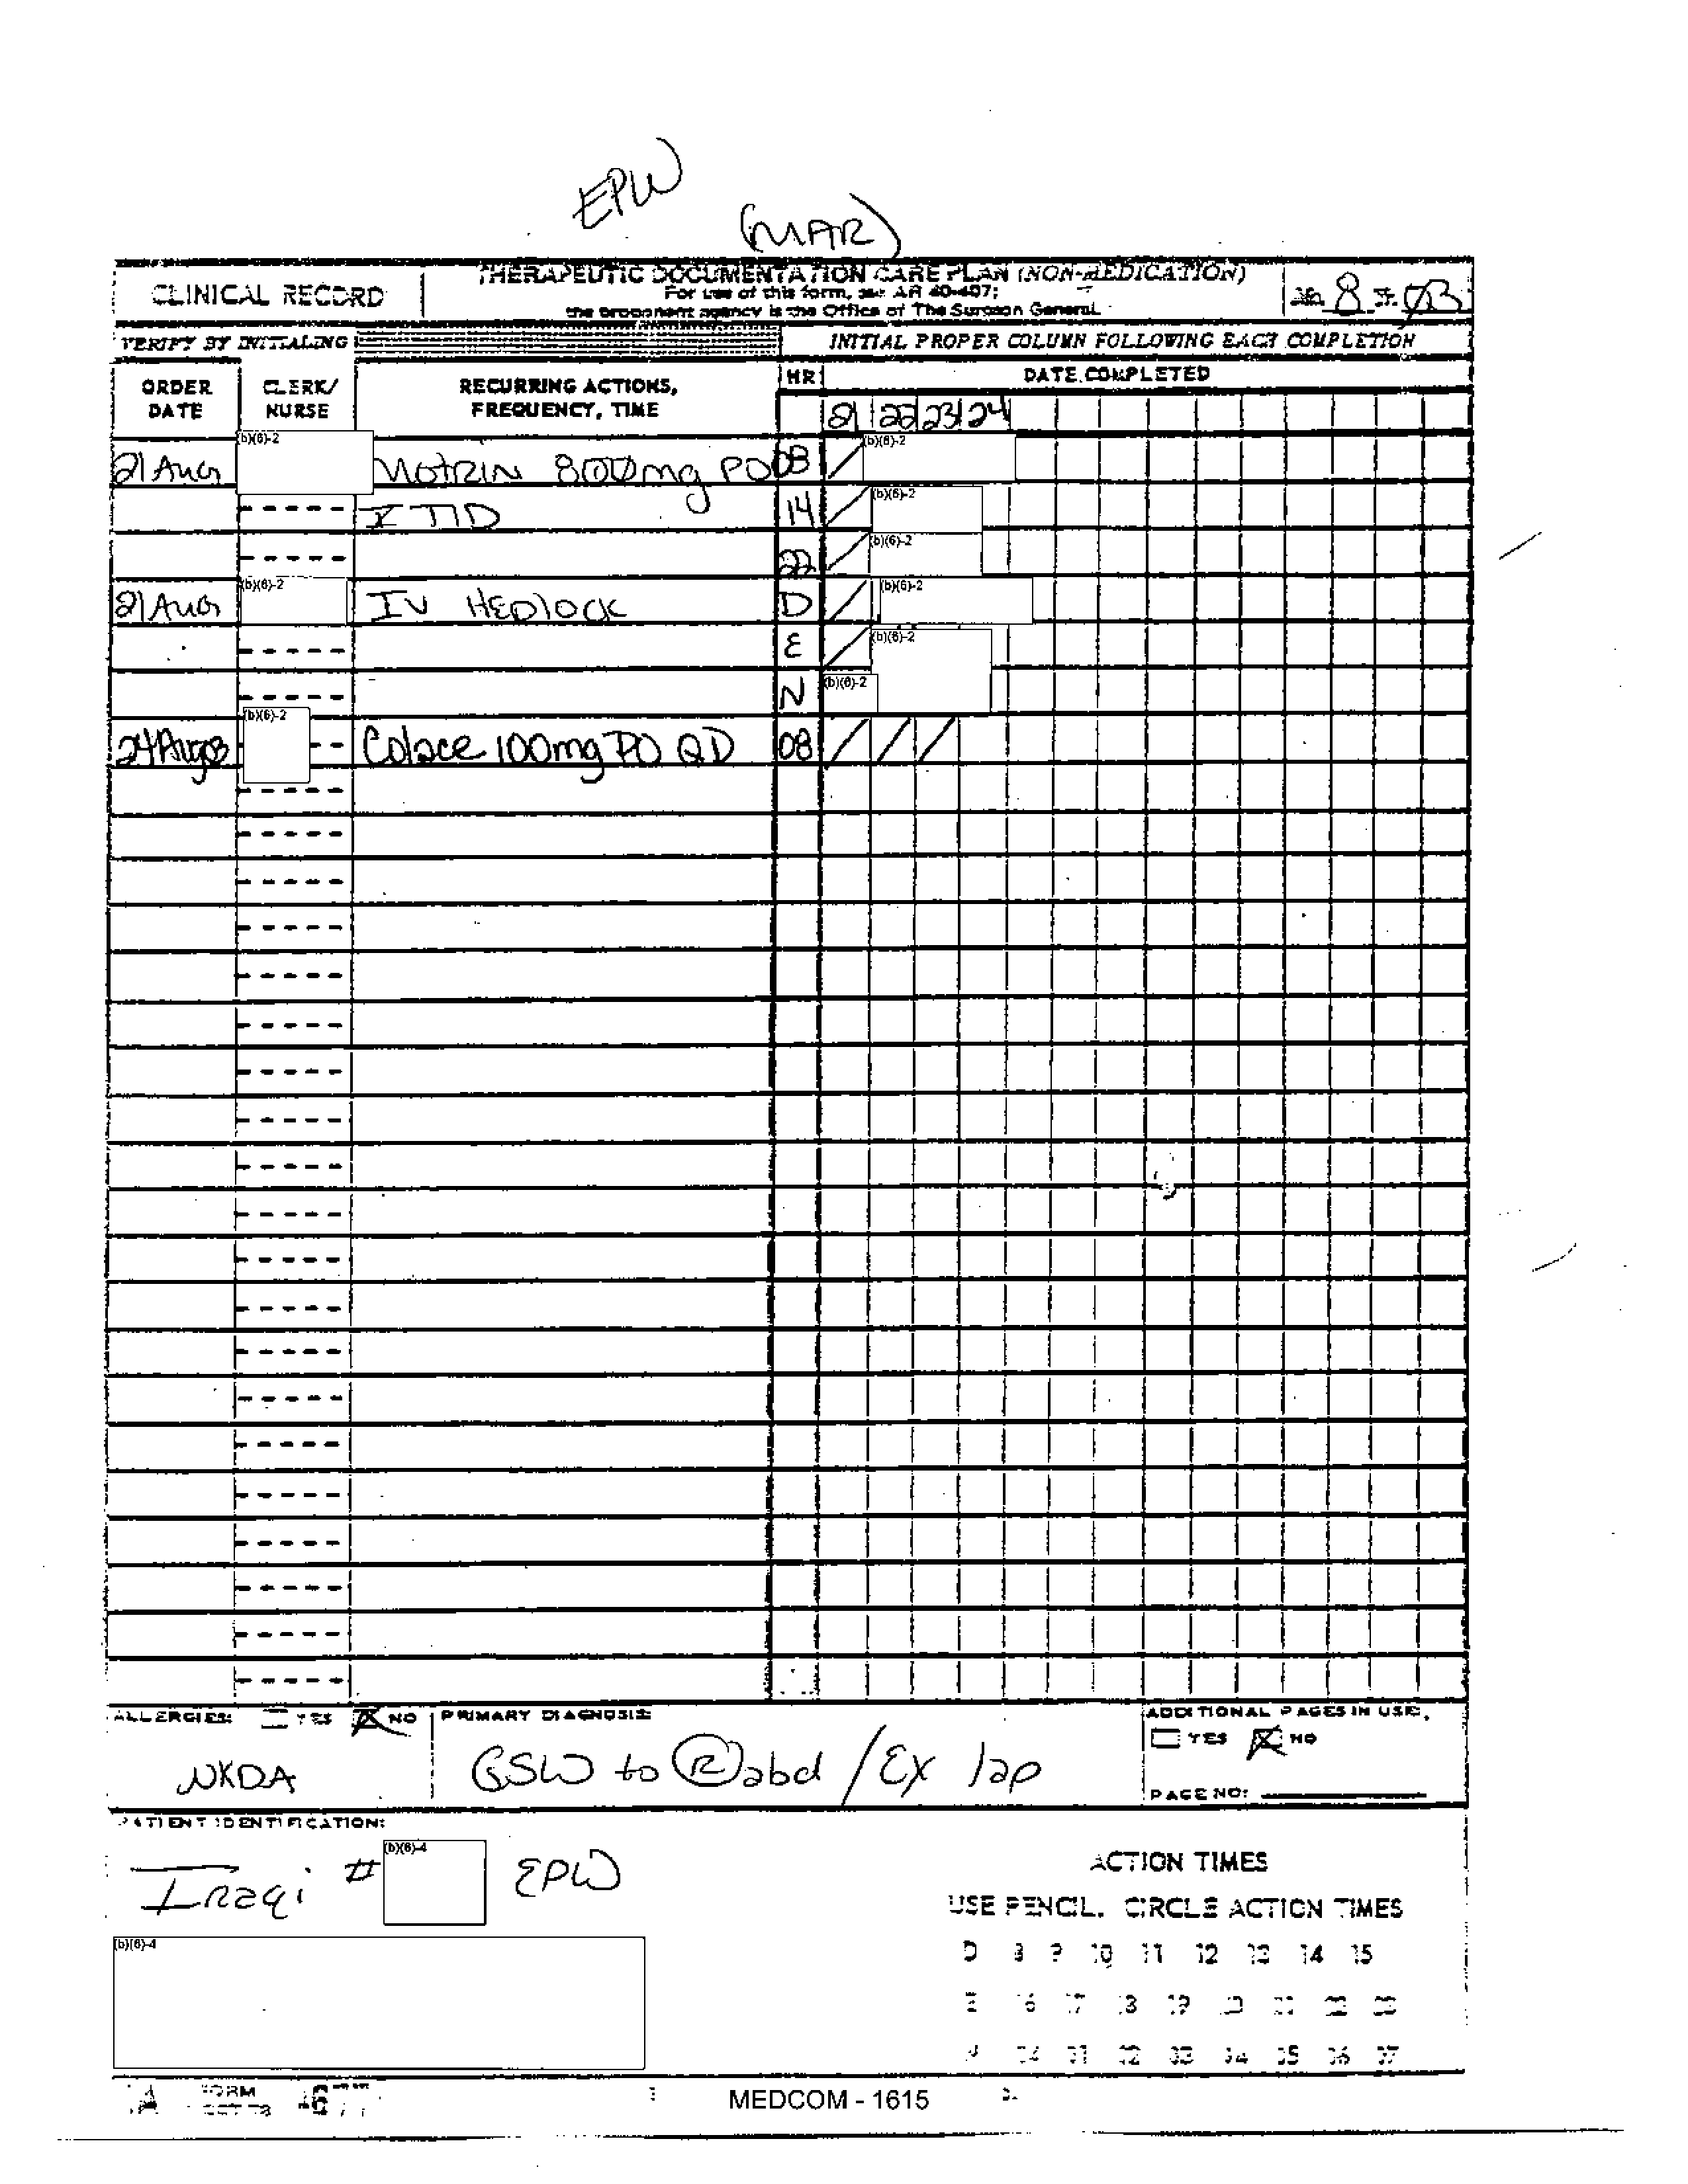 EPW
(MAR)
CLINICAL RECORD
THERAPEUTIC DOCUMENTATION CARE PLAN (NON-MEDICATION)
For use of this form, see AR 40-407;
the proponent agency is the Office of The Surgeon General.
8 03
VERIFY BY INITIALING
INITIAL PROPER COLUMN FOLLOWING EACH COMPLETION
ORDER DATE
CLERK/ NURSE
RECURRING ACTIONS, FREQUENCY, TIME
HR
DATE COMPLETED
21 22 23 24
21 Aug (b)(6)-2 MOTRIN 800mg PO 08 (b)(6)-2
I TID 14 (b)(6)-2
22 (b)(6)-2
21 Aug (b)(6)-2 IV HEPLOCK D (b)(6)-2
E (b)(6)-2
N (b)(6)-2
24 Aug 03 (b)(6)-2 Colace 100mg PO QD 08
ALLERGIES: YES NO
PRIMARY DIAGNOSIS:
ADDITIONAL PAGES IN USE:
YES NO
NKDA
GSW to (R) abd / Ex lap
PAGE NO:
PATIENT IDENTIFICATION:
Iraqi # (b)(6)-4 EPW
(b)(6)-4
ACTION TIMES
USE PENCIL. CIRCLE ACTION TIMES
D 8 9 10 11 12 13 14 15
E 16 17 18 19
FORM 4677
MEDCOM - 1615